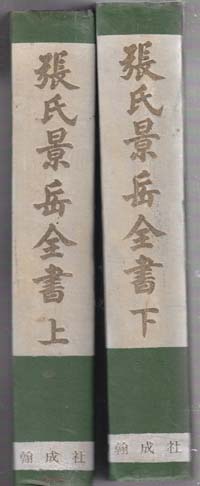 張氏景岳全書 上
翰成社
張氏景岳全書 下
翰成社